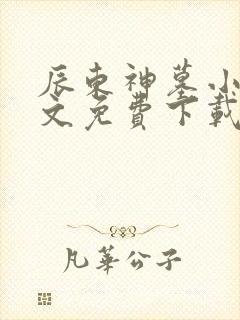 辰东神墓小
文免費下載
凡華公子